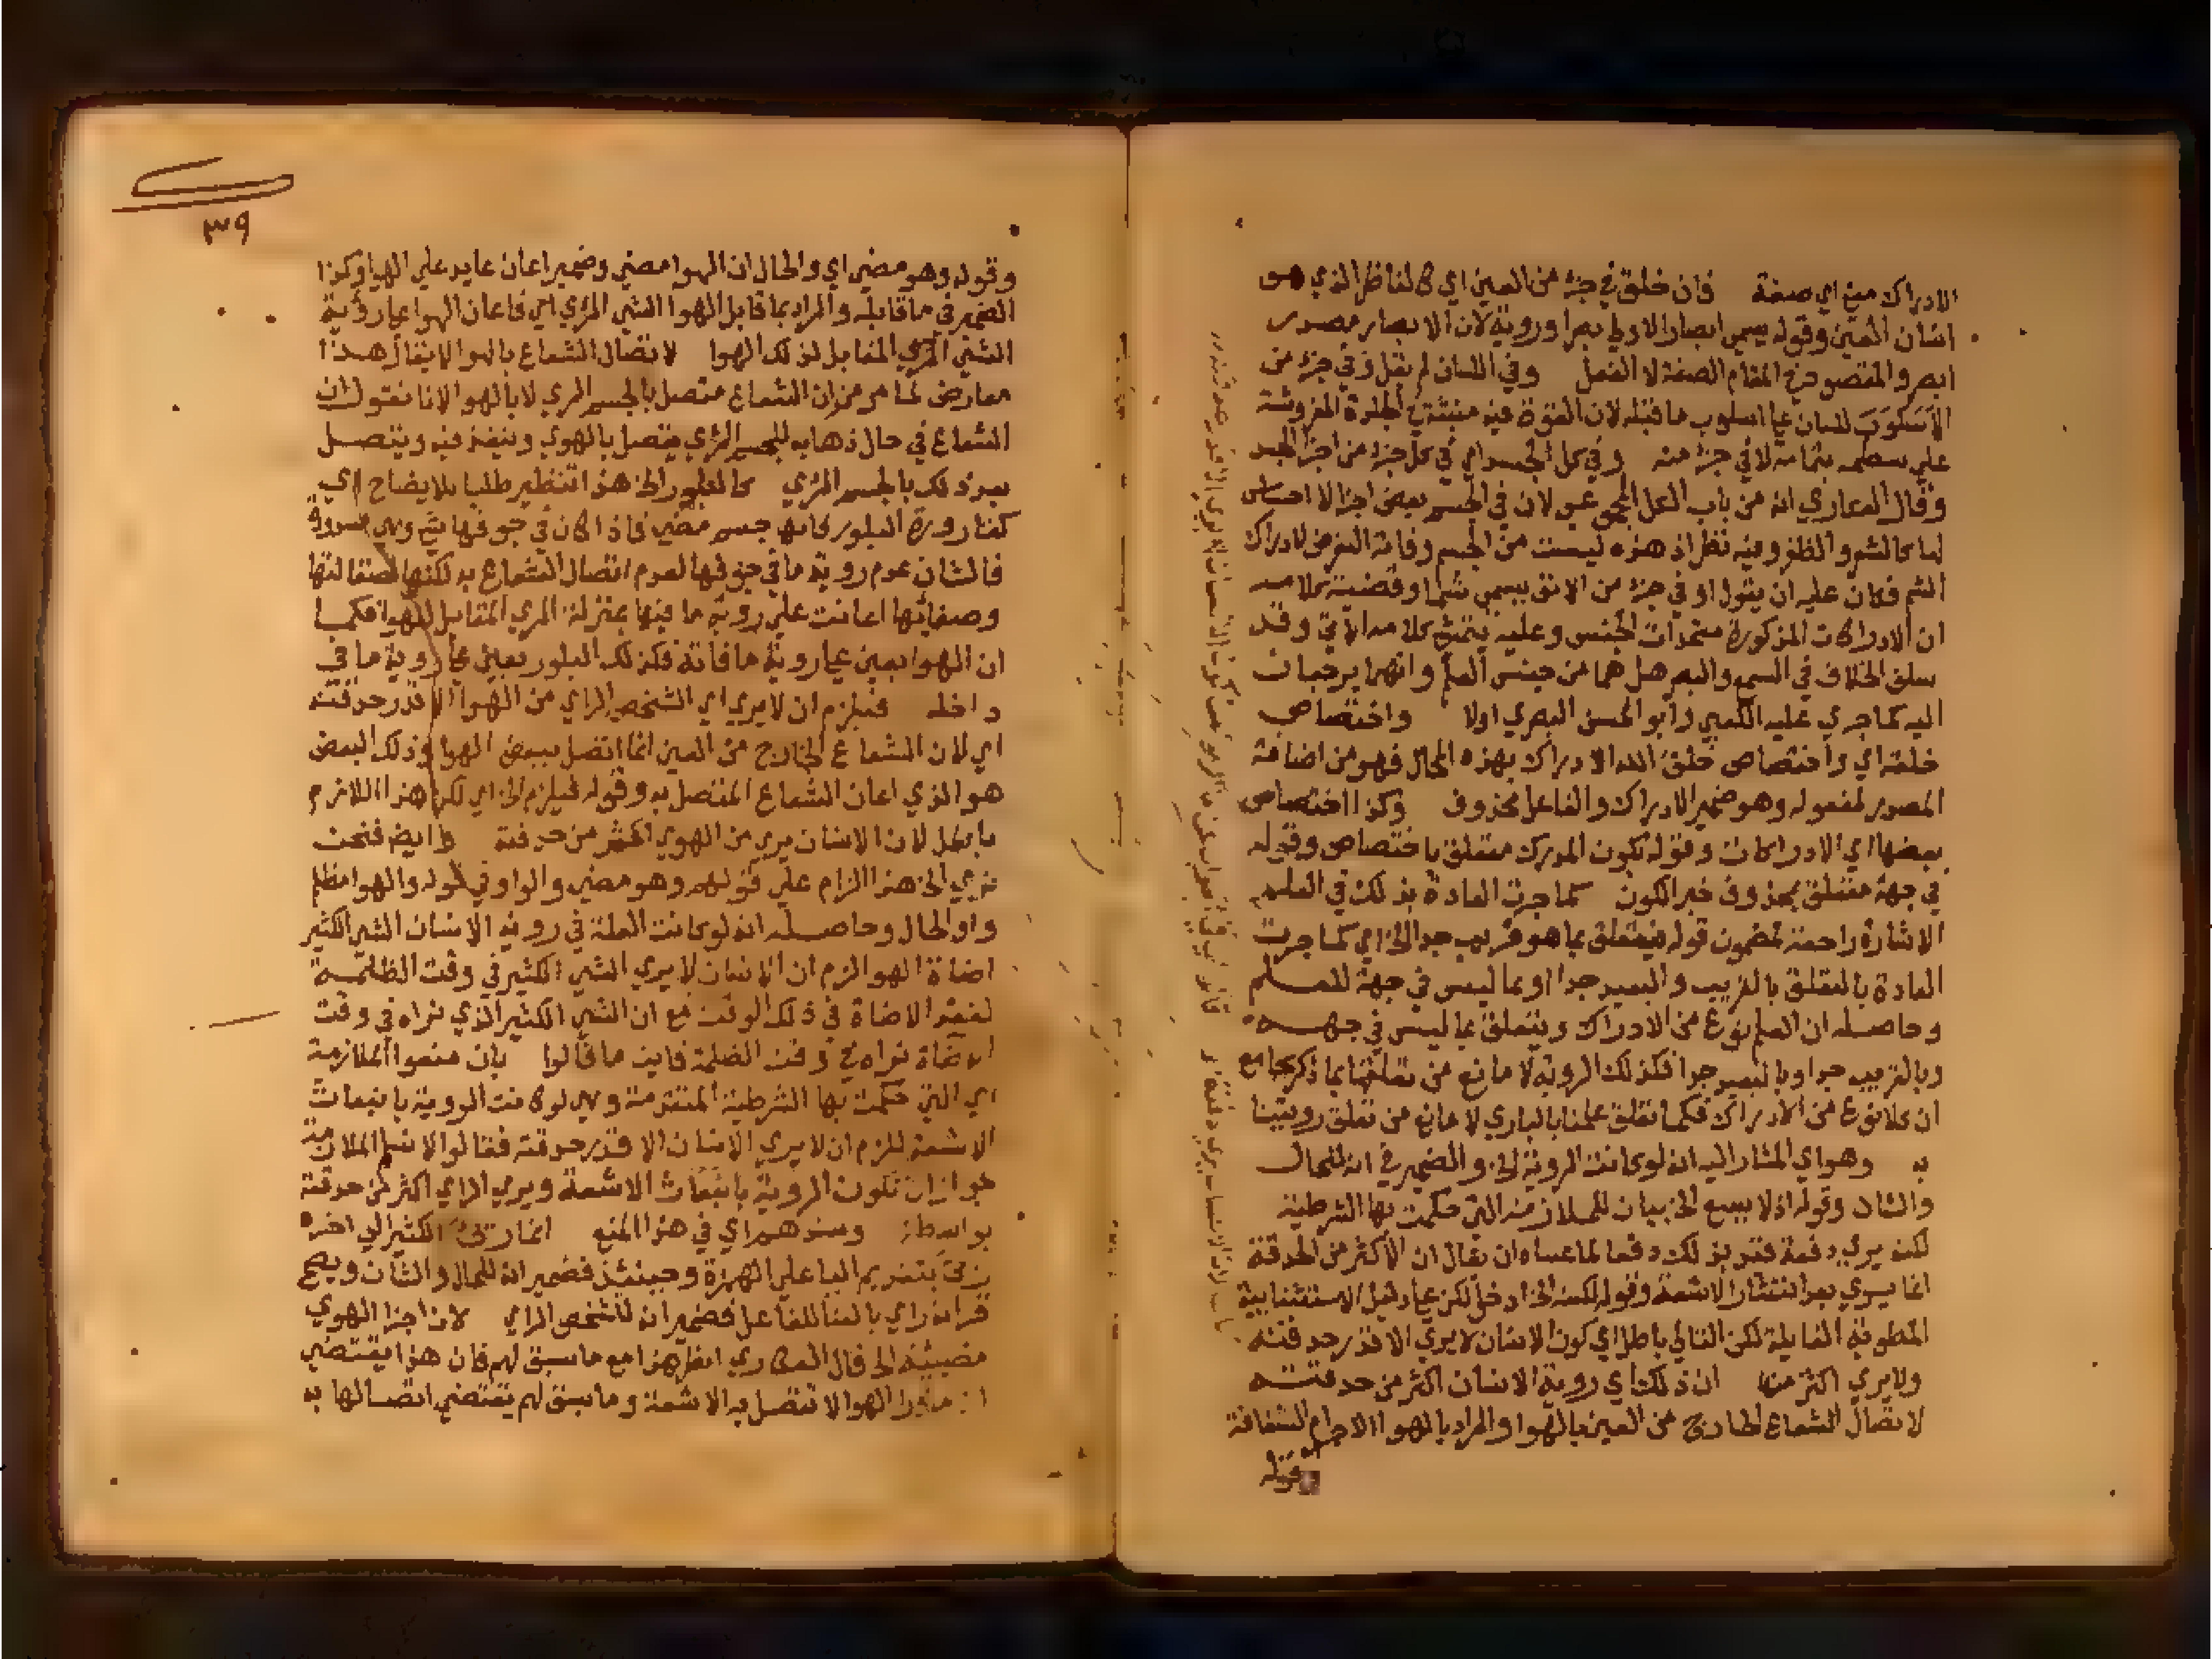 الادراك معنى اي صفة فان خلق في جزء من العين اي كالناظر الذي هو
انسان العين وقوله يسمي ابصارا الاولى بصرا وروية لان الابصار مصدر
ابصر والمقصود في المقام الصفة لا الفعل وفي اللسان لم يقل وفي جزء من
اللسان على اسلوب ما قبله لان القوة فيه منبثة في الجلدة المفروشة
على سطحه بتمامه لا في جزء منه وفي كل الجسد اي في كل جزء من اجزا الجسد
وقال العكاري انه من باب الكل المجموعي لان في الجسم بعض اجزا لا احساس
لها كالشعر والظفر وفيه نظر اذ هذه ليست من الجسم وفاته التعرض لادراك
الشم فكان عليه ان يقول او في جزء من الانف يسمي شما وقضية كلامه
ان الادراكات المذكورة متحدات الجنس وعليه يتمشى كلامه الاتي وقد
سلف الخلاف في السمع والبصر هل هما من جنس العلم وانهما يرجعان
اليه كما جرى عليه الكعبي وابو الحسن البصري اولا واختصاص
خلقه اي واختصاص خلق الله الادراك بهذه المحال فهو من اضافة
المصدر لمفعوله وهو ضمير الادراك والفاعل محذوف وكذا اختصاص
بعضها اي الادراكات وقوله بكون المدرك متعلق باختصاص وقوله
في جهة متعلق بمحذوف خبر الكون كما جرت العادة بذلك في العلم
الاشارة راجعة لمضمون قوله فيتعلق بما هو قريب جدا الخ اي كما جرت
العادة بالتعلق بالقريب والبعيد جدا او بما ليس في جهة للعلم
وحاصله ان العلم نوع من الادراك ويتعلق بما ليس في جهة
وبالقريب جدا وبالبعيد جدا فكذلك الروية لا مانع من تعلقها بما ذكر بجامع
ان كلا نوع من الادراك فكما تعلق علمنا بالباري لا مانع من تعلق رويتنا
به وهو اي المشار اليه انه لو كانت الروية الخ والضمير في انه للحال
والشان وقوله اذ لا يسع الخ بيان للملازمة التي حكمت بها الشرطية
لكنه يري دفعة فتر بذلك دفعا لما عساه ان يقال ان الاكثر من الحدقة
انما يري بعد انتشار الاشعة وقوله لكنه الخ ادخل لكن على دليل الاستثنائية
المطوية القايلة لكن التالي باطل اي كون الانسان لا يري الا قدر حدقته
ولا يري اكثر منها ان ذلك اي روية الانسان اكثر من حدقته
لاتصال الشعاع الخارج من العين بالهوا والمراد بالهوا الاجرام الشفافة
وقوله
٣٩
وقوله وهو مضي اي والحال ان الهوا مضي وضمير اعان عايد على الهوا وكذا
الضمير في ما قابله والمراد بما قابل الهوا الشي المرئي اي فاعان الهوا على رؤية
الشي المرئي المقابل لذلك الهوا لاتصال الشعاع بالهوا لا يقال هذا
معارض لما مر من ان الشعاع متصل بالجسم المري لا بالهوا لانا نقول ان
الشعاع في حال ذهابه للجسم المرئي يتصل بالهوي وينفذ فيه ويتصل
بعد ذلك بالجسم المرئي كالبلور الخ هذا تنظير طلبا للايضاح اي
كقارورة البلور كانها جسم مضي فاذا كان في جوفها شي وهي مسدودة
فالشان عدم روية ما في جوفها لعدم اتصال الشعاع به لكنها لصقالتها
وصفائها اعانت على روية ما فيها بمنزلة المري المقابل للهوا فكما
ان الهوا يعين على روية ما قابله فكذلك البلور يعين على روية ما في
داخله فيلزم ان لا يري اي الشخص الراي من الهوا الا قدر حدقته
اي لان الشعاع الخارج من العين انما اتصل ببعض الهوا وذلك البعض
هو الذي اعان الشعاع المتصل به وقوله فيلزم الخ اي لكن هذا اللازم
باطل لان الانسان يري من الهوي اكثر من حدقته وايضا فنحن
نري الخ هذا الزام على قولهم وهو مضي والواو في قوله والهوا مظلم
واو الحال وحاصله انه لو كانت العلة في روية الانسان الشي الكثير
اضاة الهوا لزم ان الانسان لا يري الشي الكثير في وقت الظلمة
لفقد الاضاة في ذلك الوقت مع ان الشي الكثير الذي نراه في وقت
الاضاة نراه في وقت الظلمة فاين ما قالوا بان منعوا الملازمة
اي التي حكمت بها الشرطية المتقدمة وهي لو كانت الروية بانبعاث
الاشعة للزم ان لا يري الانسان الا قدر حدقته فقالوا لا نسلم الملازمة
لجواز ان تكون الروية بانبعاث الاشعة ويري الراي اكثر من حدقته
بواسطة وسندهم اي في هذا المنع انما رئي الكثير الي اخره
بتقديم اليا على الهمزة وحينئذ فضمير انه للحال والشان ويصح
قراته راي بالبنا للفاعل فضمير انه للشخص الراي لان اجزا الهوي
مضيئة الخ قال العكاري انظر هذا مع ما سبق لهم فان هذا يقتضي
ان ما ورا الهوا لا تتصل به الاشعة وما سبق لهم يقتضي اتصالها به